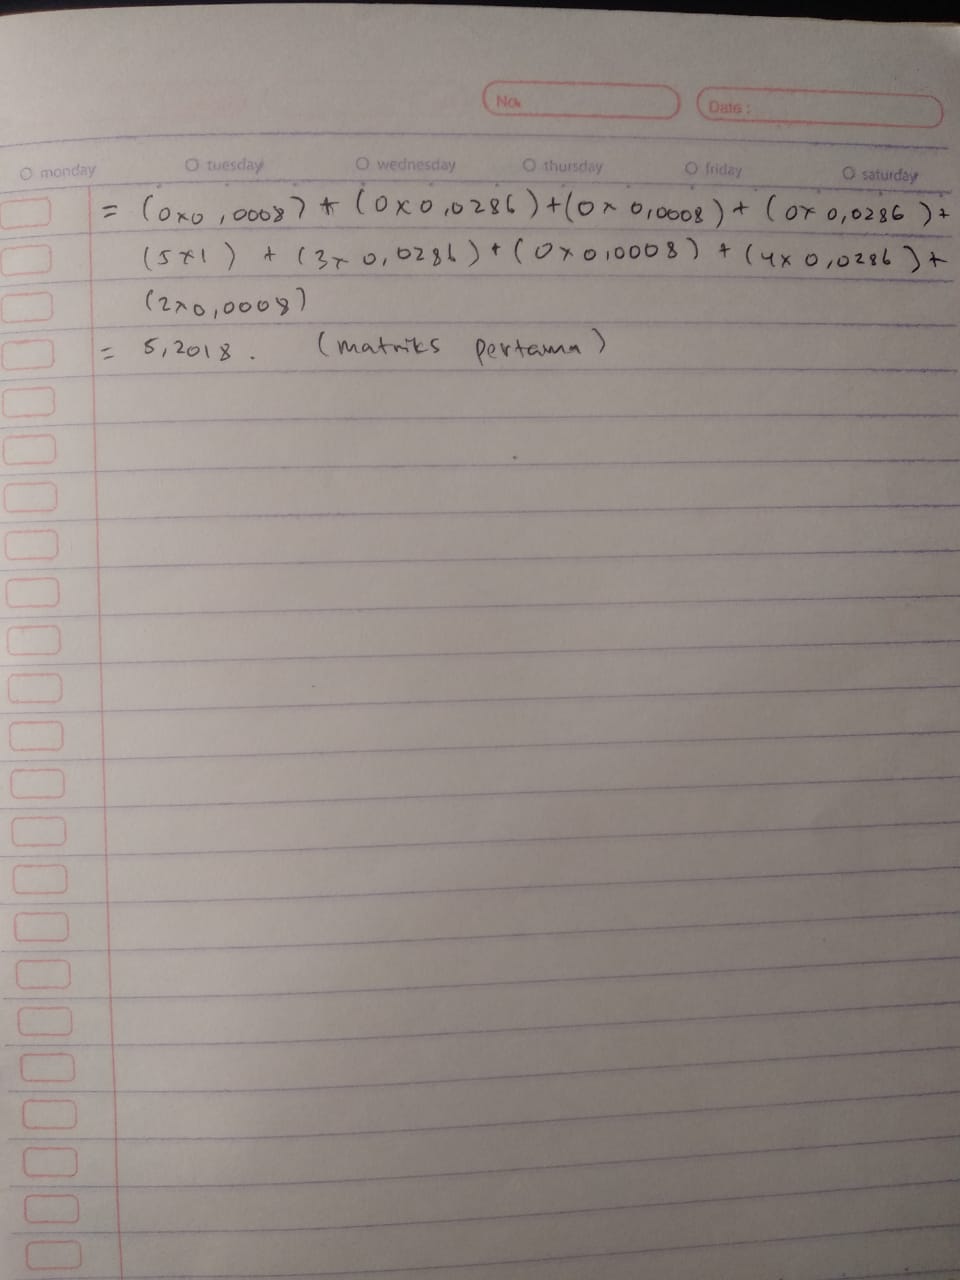 No.
Date :
monday tuesday wednesday thursday friday saturday
= (0x0,0008) + (0x0,0286)+(0x 0,0008) + (0x 0,0286) +
(5x1) + (3x 0,0286) + (0x0,0008) + (4x 0,0286) +
(2x0,0008)
= 5,2018. (matriks pertama)